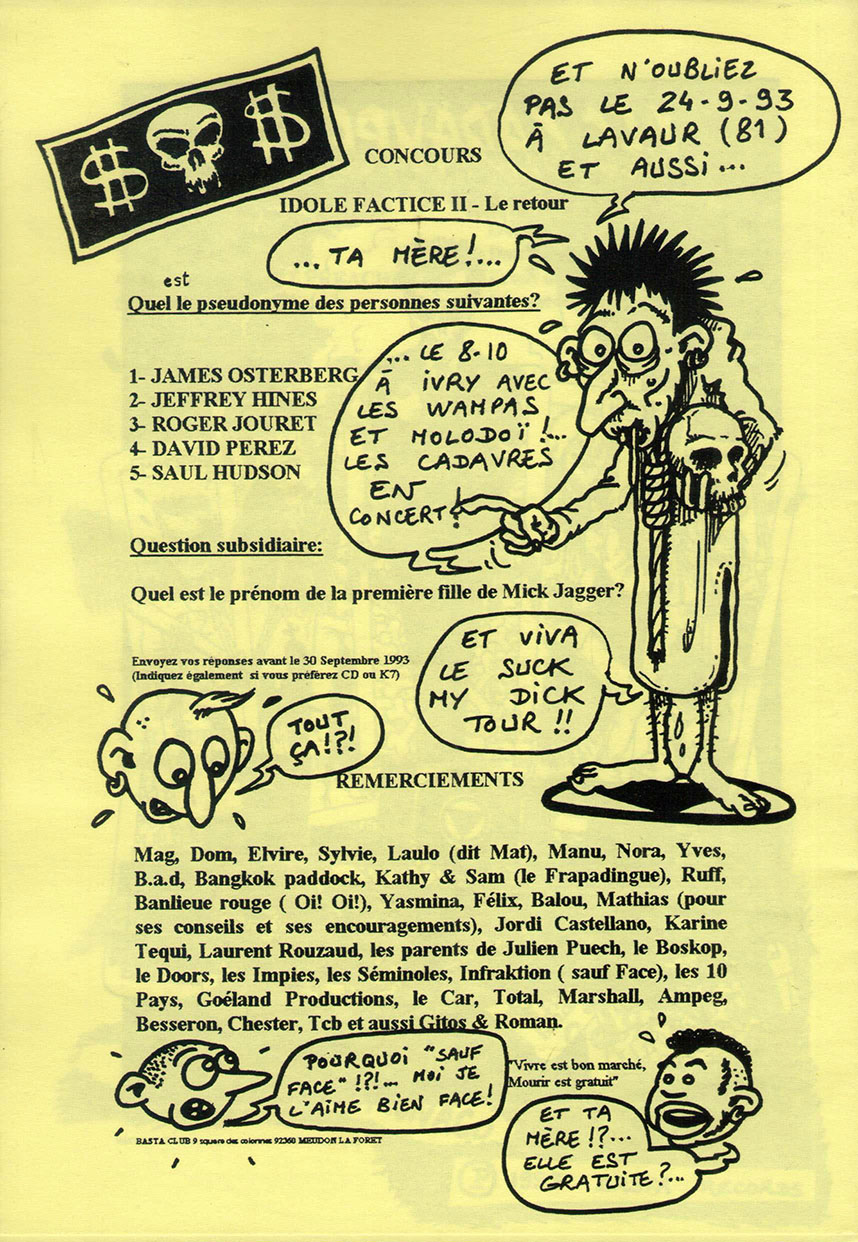 $ $
ET N'OUBLIEZ
PAS LE 24-9-93
À LAVAUR (81)
ET AUSSI...
CONCOURS
IDOLE FACTICE II - Le retour
...TA MÈRE!...
est
Quel le pseudonyme des personnes suivantes?
1- JAMES OSTERBERG
2- JEFFREY HINES
3- ROGER JOURET
4- DAVID PEREZ
5- SAUL HUDSON
... LE 8-10
À IVRY AVEC
LES WAMPAS
ET MOLODOÏ!...
LES CADAVRES
EN
CONCERT!
Question subsidiaire:
Quel est le prénom de la première fille de Mick Jagger?
Envoyez vos réponses avant le 30 Septembre 1993
(Indiquez également si vous préférez CD ou K7)
ET VIVA
LE SUCK
MY DICK
TOUR !!
TOUT
ÇA!?!
REMERCIEMENTS
Mag, Dom, Elvire, Sylvie, Laulo (dit Mat), Manu, Nora, Yves,
B.a.d, Bangkok paddock, Kathy & Sam (le Frapadingue), Ruff,
Banlieue rouge ( Oi! Oi!), Yasmina, Félix, Balou, Mathias (pour
ses conseils et ses encouragements), Jordi Castellano, Karine
Tequi, Laurent Rouzaud, les parents de Julien Puech, le Boskop,
le Doors, les Impies, les Séminoles, Infraktion ( sauf Face), les 10
Pays, Goéland Productions, le Car, Total, Marshall, Ampeg,
Besseron, Chester, Tcb et aussi Gitos & Roman.
POURQUOI "SAUF
FACE" !?!... MOI JE
L'AIME BIEN FACE!
"Vivre est bon marché,
Mourir est gratuit"
ET TA
MÈRE!?...
ELLE EST
GRATUITE?...
BASTA CLUB 9 square des colonnes 92360 MEUDON LA FORET